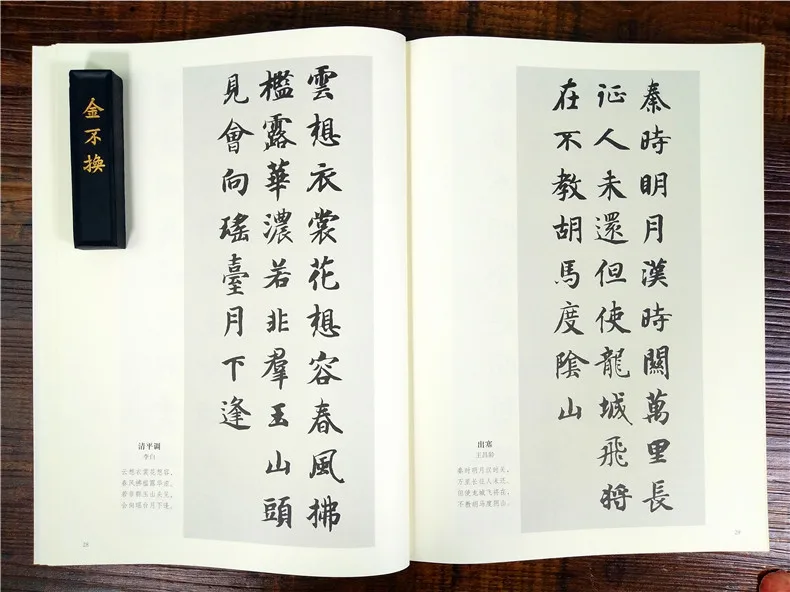 金不換
雲想衣裳花想容春風拂
檻露華濃若非羣玉山頭
見會向瑤臺月下逢
清平调
李白
云想衣裳花想容，
春风拂槛露华浓。
若非群玉山头见，
会向瑶台月下逢。
28
秦時明月漢時關萬里長
征人未還但使龍城飛將
在不教胡馬度陰山
出塞
王昌龄
秦时明月汉时关，
万里长征人未还。
但使龙城飞将在，
不教胡马度阴山。
29